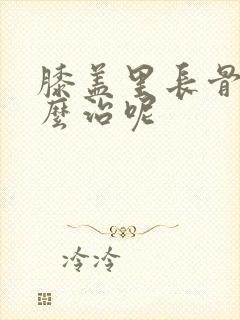 膝盖里長骨
麼治呢
冷冷